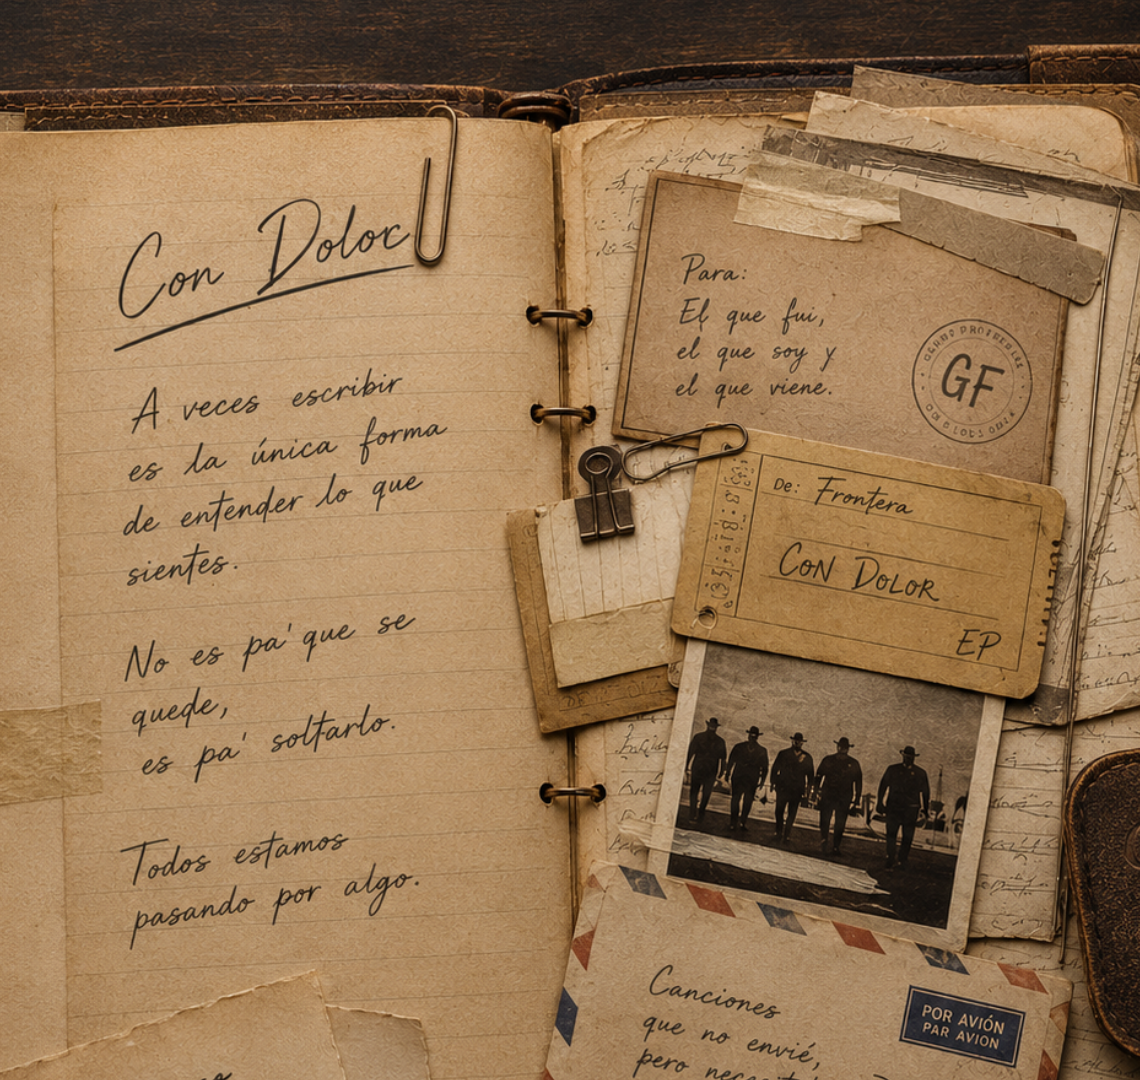 Con Dolor
A veces escribir
es la única forma
de entender lo que
sientes.
No es pa' que se
quede,
es pa' soltarlo.
Todos estamos
pasando por algo.
Para:
El que fui,
el que soy y
el que viene.
GF
De: Frontera
CON DOLOR
EP
Canciones
que no envié,
pero
POR AVIÓN
PAR AVION